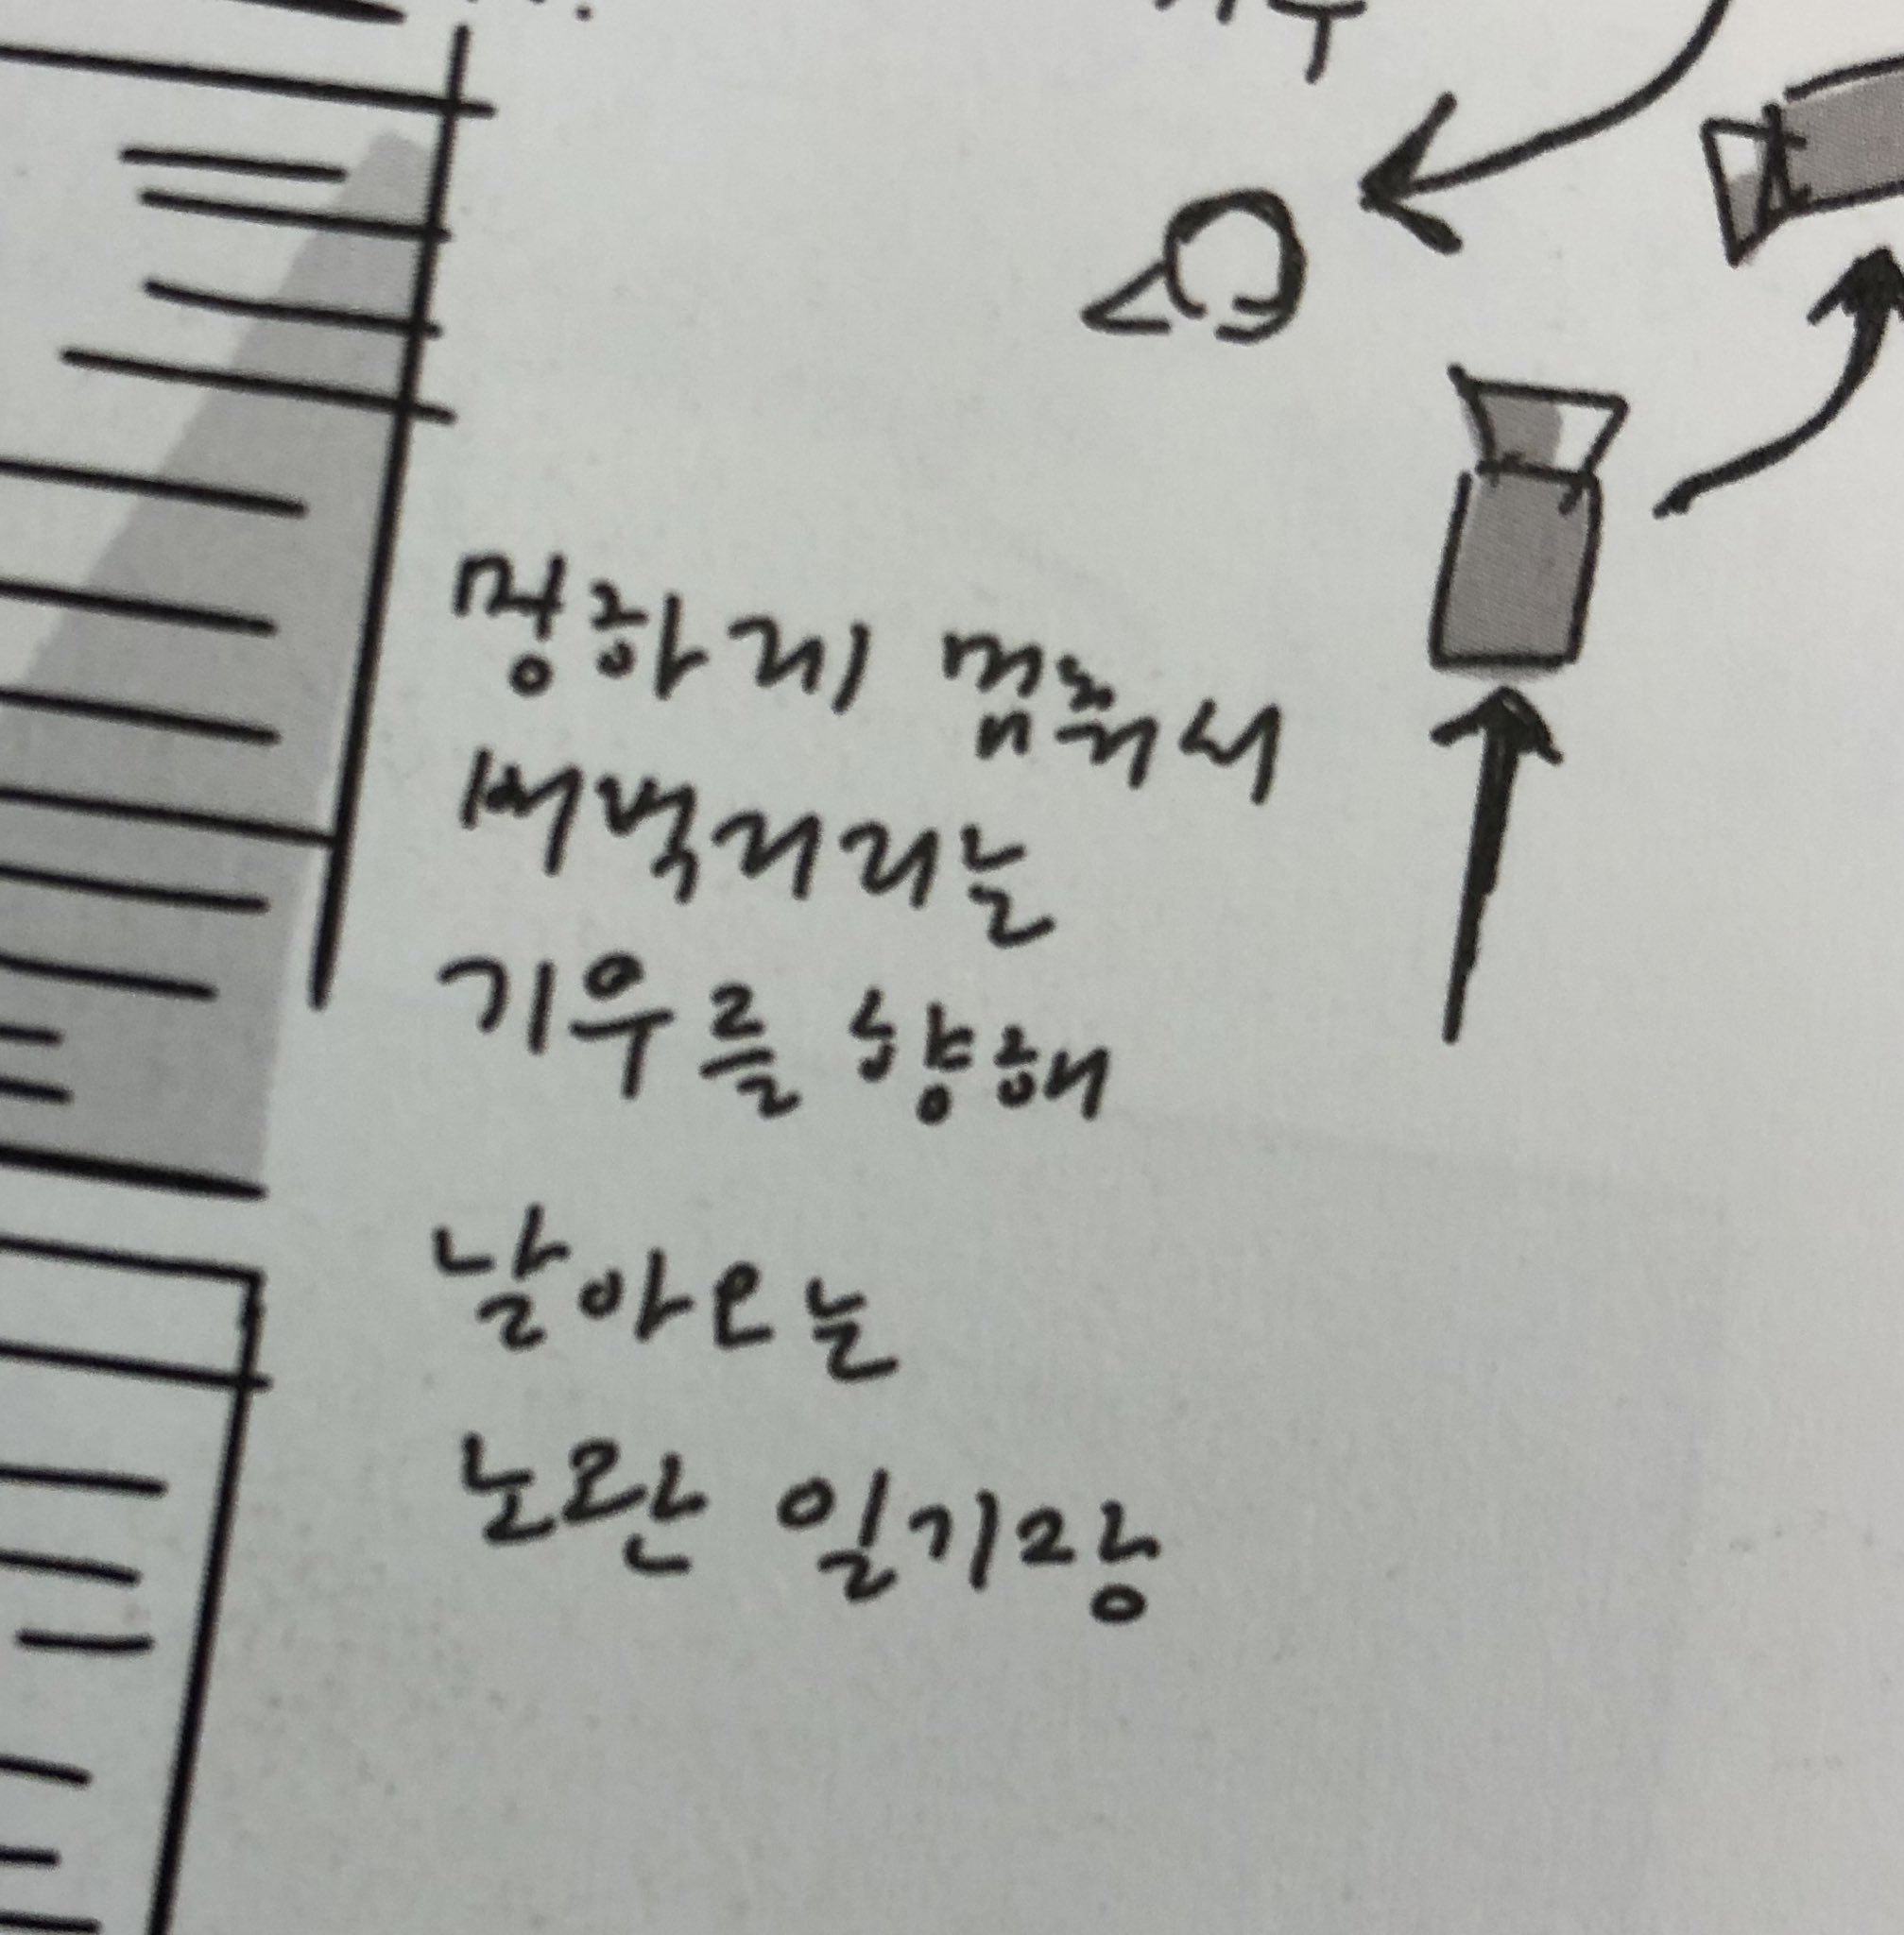 멍하게 멈춰서
버벅거리는
기우를 향해
날아오는
노란 일기장